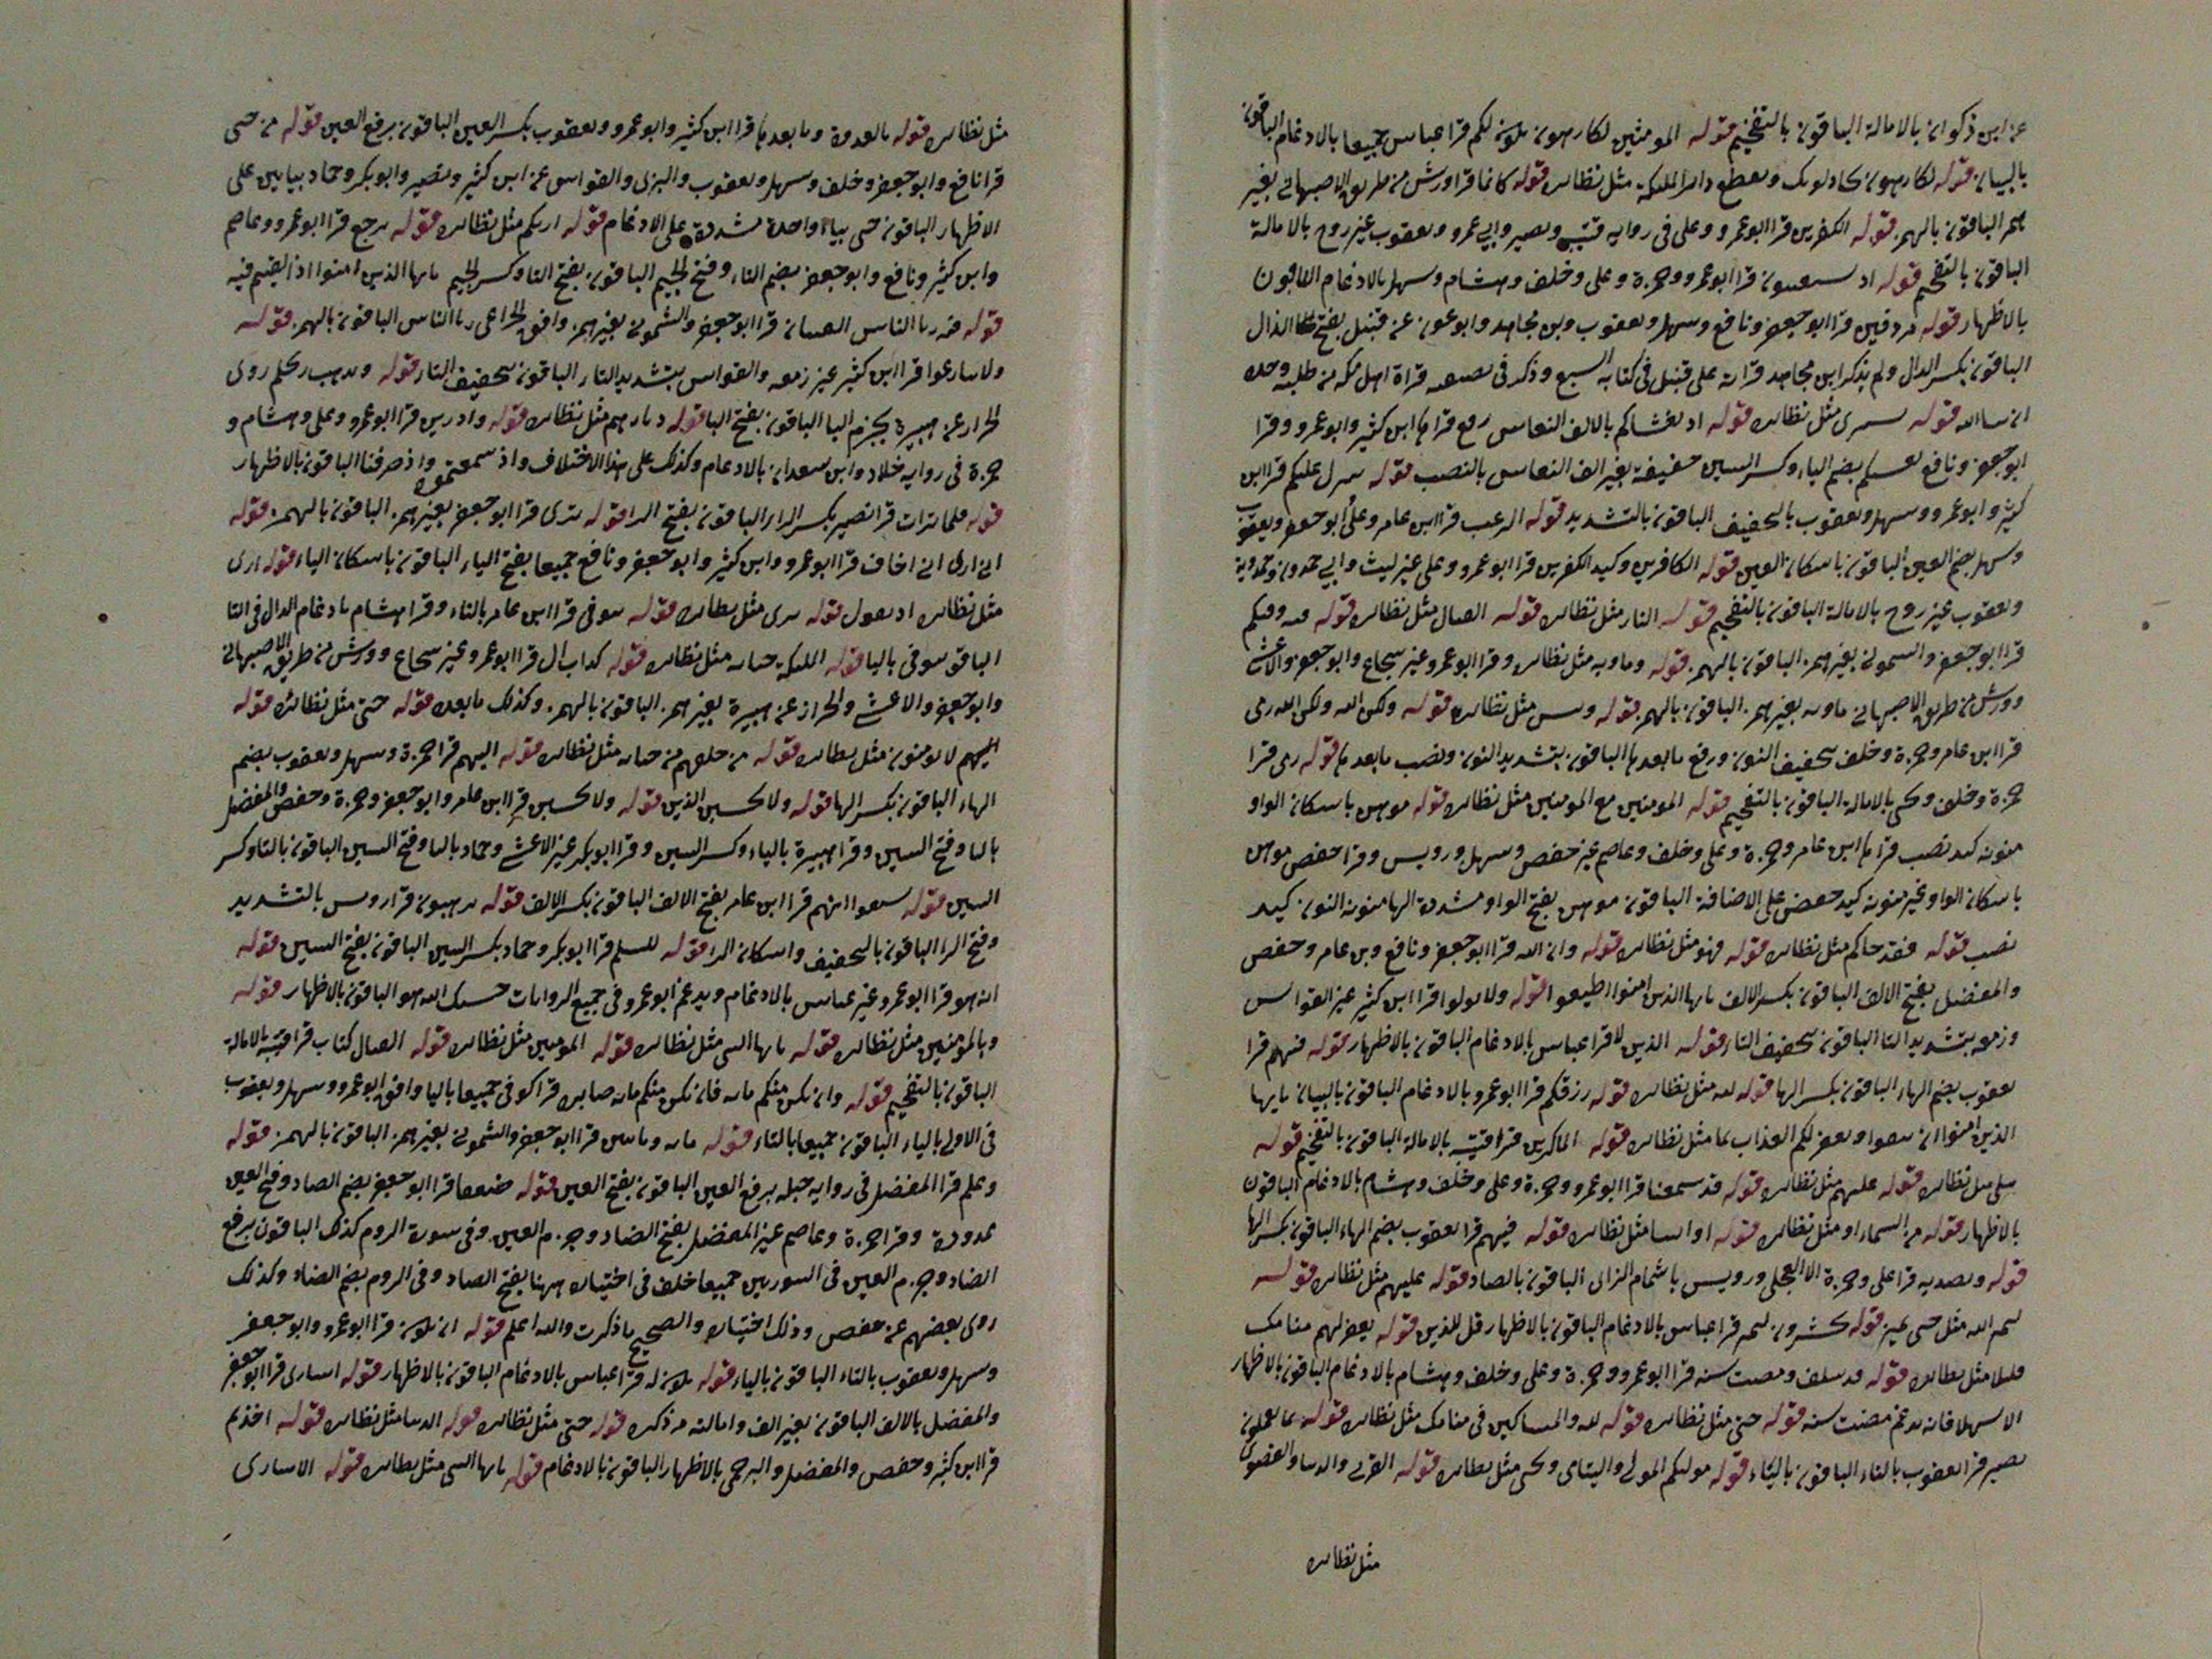 عن ابن ذكوان بالامالة الباقون بالتفخيم قوله المومنين لكارهون تكون لكم قرا عباس جميعا بالادغام الباقون
بالبيان قوله لكارهون كادلونك ويقطع دابر الملئكة مثل نظائره قوله كانما قرا ورش من طريق الاصبهاني بغير
همز الباقون بالهمز قوله الكفرين قرا ابو عمرو وعلى في رواية قتيبه ونصير وابي عمرو ويعقوب غير روح بالامالة
الباقون بالتفخيم قوله اذ تستغيثون قرا ابو عمرو وحمزة وعلى وخلف وهشام وسهل بالادغام الباقون
بالاظهار قوله مردفين قرا ابو جعفر ونافع وسهل ويعقوب وبن مجاهد وابو عون عن قنبل بفتح الدال
الباقون بكسر الدال ولم يذكر ابن مجاهد قراته على قنبل في كتابه السبع وذكر في قراة اهل مكه من طلبه وجده
ان شا الله قوله بشرى مثل نظائره قوله اذ يغشاكم بالالف النعاس رفع قراها ابن كثير وابو عمرو وقرا
ابو جعفر ونافع يغشيكم بضم الياء وكسر الشين خفيفة بغير الف النعاس بالنصب قوله ينزل عليكم قرا ابن
كثير وابو عمرو وسهل ويعقوب بالتخفيف الباقون بالتشديد قوله الرعب قرا ابن عامر وعلى وابو جعفر ويعقوب
وسهل بضم العين الباقون باسكان العين قوله الكافرين وكيد الكفرين قرا ابو عمرو وعلى غير ليث وابي حمدون وحمدوية
ويعقوب غير روح بالامالة الباقون بالتفخيم قوله النار مثل نظائره قوله القتال مثل نظائره قوله فيه وفيكم
قرا ابو جعفر والشموني بغير همز الباقون بالهمز قوله وماويه مثل نظائره وقرا ابو عمرو غير شجاع وابو جعفر والاعشى
وورش من طريق الاصبهاني ماويه بغير همز الباقون بالهمز قوله وبئس مثل نظائره قوله ولكن الله ولكن الله رمى
قرا ابن عامر وحمزة وخلف بتخفيف النون ورفع ما بعدها الباقون بتشديد النون ونصب ما بعدها قوله رمى قرا
حمزة وخلف ويحيى بالامالة الباقون بالتفخيم قوله المومنين مع المومنين مثل نظائره قوله موهن باسكان الواو
منونه كيد نصب قراها ابن عامر وحمزة وعلى وخلف وعاصم غير حفص وسهل ورويس وقرا حفص موهن
باسكان الواو غير منونه كيد خفض على الاضافة الباقون موهن بفتح الواو مشددة الها منونه النون كيد
نصب قوله فقد جاكم مثل نظائره قوله فهو مثل نظائره قوله وان الله قرا ابو جعفر ونافع وبن عامر وحفص
والمفضل بفتح الالف الباقون بكسر الالف يايها الذين امنوا اطيعوا قوله ولا تولوا قرا ابن كثير غير القواس
وزمعه بتشديد التا الباقون بتخفيف التاء قوله الذين لا قرا عباس بالادغام الباقون بالاظهار قوله فيهم قرا
يعقوب بضم الهاء الباقون بكسر الها قوله لله مثل نظائره قوله رزقكم قرا ابو عمرو بالادغام الباقون بالبيان يايها
الذين امنوا ان تتقوا ويغفر لكم العذاب بما مثل نظائره قوله الماكرين قرا قتيبه بالامالة الباقون بالتفخيم قوله
تتلى مثل نظائره قوله عليهم مثل نظائره قوله قد سمعنا قرا ابو عمرو وحمزة وعلى وخلف وهشام بالادغام الباقون
بالاظهار قوله من السماء او مثل نظائره قوله او ائتنا مثل نظائره قوله فيهم قرا يعقوب بضم الهاء الباقون بكسر الها
قوله وتصدية قرا على وحمزة الا العجلى ورويس باشمام الزاى الباقون بالصاد قوله عليهم مثل نظائره قوله
ليميز الله مثل حتى يميز قوله يحشرون ليميز قرا عباس بالادغام الباقون بالاظهار قل للذين قوله يغفر لهم منامك
قليلا مثل نظائره قوله قد سلف ومضت سنه قرا ابو عمرو وحمزة وعلى وخلف وهشام بالادغام الباقون بالاظهار
الا سهلا فانه يدغم مضت سنه قوله حتى مثل نظائره قوله لله والمساكين في منامك مثل نظائره قوله بما يعملون
بصير قرا يعقوب بالتاء الباقون بالياء قوله موليكم المولى واليتامى ويحيى مثل نظائره قوله القربى والدنيا والقصوى
مثل نظائره
مثل نظائره قوله بالعدوة وما بعدها قرا ابن كثير وابو عمرو ويعقوب بكسر العين الباقون برفع العين قوله من حيى
قرا نافع وابو جعفر وخلف وسهل ويعقوب والبزى والقواس عن ابن كثير ونصير وابو بكر وحماد بيايين على
الاظهار الباقون حى بياء واحدة مشددة على الادغام قوله اريكم مثل نظائره قوله ترجع قرا ابو عمرو وعاصم
وابن كثير ونافع وابو جعفر بضم التاء وفتح الجيم الباقون بفتح التا وكسر الجيم يايها الذين امنوا اذا لقيتم فيه
قوله فيه ريا الناس الفيتان قرا ابو جعفر والشموني بغير همز وافق الخزاعى ريا الناس الباقون بالهمز قوله
ولا تنازعوا قرا ابن كثير غير زمعه والقواس بتشديد التاء الباقون بتخفيف التاء قوله وتذهب ريحكم روى
الخراز عن هبيرة بجزم اليا الباقون بفتح البا قوله ديارهم مثل نظائره قوله واذ زين قرا ابو عمرو وعلى وهشام و
حمزة في رواية خلاد وابن سعدان بالادغام وكذلك على هذا الاختلاف واذ سمعتموه واذ صرفنا الباقون بالاظهار
قوله فلما تراءت قرا نصير بكسر الراء الباقون بفتح الرا قوله برى قرا ابو جعفر بغير همز الباقون بالهمز قوله
اني ارى اني اخاف قرا ابو عمرو وابن كثير وابو جعفر ونافع جميعا بفتح الياء الباقون باسكان الياء قوله ارى
مثل نظائره اذ يقول قوله ترى مثل نظائره قوله يتوفى قرا ابن عامر بالتاء وقرا هشام بادغام الدال في التا
الباقون يتوفى باليا قوله الملئكة خيانه مثل نظائره قوله كداب ال قرا ابو عمرو غير شجاع وورش من طريق الاصبهاني
وابو جعفر والاعشى والخراز عن هبيرة بغير همز الباقون بالهمز وكذلك ما بعده قوله حتى مثل نظائره قوله
اليهم لا يومنون مثل نظائره قوله من خلفهم من خيانه مثل نظائره قوله اليهم قرا حمزة وسهل ويعقوب بضم
الهاء الباقون بكسر الها قوله ولا تحسبن الذين قوله ولا تحسبن قرا ابن عامر وابو جعفر وحمزة وحفص والمفضل
باليا وفتح السين وقرا هبيرة بالياء وكسر السين وقرا ابو بكر غير الاعشى وحماد بالتا وفتح السين الباقون بالتا وكسر
السين قوله سبقوا انهم قرا ابن عامر بفتح الالف الباقون بكسر الالف قوله ترهبون قرا رويس بالتشديد
وفتح الرا الباقون بالتخفيف واسكان الرا قوله للسلم قرا ابو بكر وحماد بكسر السين الباقون بفتح السين قوله
انه هو قرا ابو عمرو غير عباس بالادغام ويدغم ابو عمرو في جميع الروايات حسبك الله هو الباقون بالاظهار قوله
وبالمؤمنين مثل نظائره قوله يايها النبى مثل نظائره قوله المومنين مثل نظائره قوله القتال كتاب قرا قتيبه بالامالة
الباقون بالتفخيم قوله وان تكن منكم مايه فان تكن منكم مايه صابره قرا كوفى جميعا باليا وافق ابو عمرو وسهل ويعقوب
في الاولى بالياء الباقون جميعا بالتاء قوله مايه ومايتين قرا ابو جعفر والشمونى بغير همز الباقون بالهمز قوله
وعلم قرا المفضل في رواية جبله برفع العين الباقون بفتح العين قوله ضعفا قرا ابو جعفر بضم الضاد وفتح العين
ممدودة وقرا حمزة وعاصم غير المفضل بفتح الضاد وجزم العين وفي سورة الروم كذلك الباقون برفع
الضاد وجزم العين في السورتين جميعا خلف في اختياره ههنا بفتح الضاد وفي الروم بضم الضاد وكذلك
روى بعضهم عن حفص وذلك اختياره والصحيح ما ذكرت والله اعلم قوله ان تكون قرا ابو عمرو وابو جعفر
وسهل ويعقوب بالتاء الباقون بالياء قوله تكون له قرا عباس بالادغام الباقون بالاظهار قوله اسارى قرا ابو جعفر
والمفضل بالالف الباقون بغير الف وامالته مر ذكره قوله حتى مثل نظائره قوله الدنيا مثل نظائره قوله اخذتم
قرا ابن كثير وحفص والمفضل والبرجمى بالاظهار الباقون بالادغام قوله يايها النبى مثل نظائره قوله الاسارى